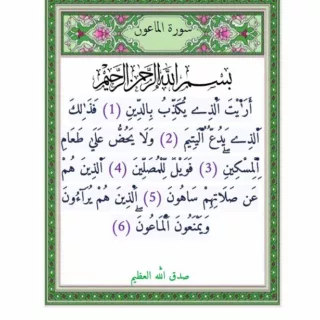 سورة الماعون
بسم الله الرحمن الرحيم
أَرَٰيْتَ ٱلَّذِے يُكَذِّبُ بِالدِّينِ (1) فَذَٰلِكَ
ٱلَّذِے يَدُعُّ ٱلْيَتِيمَ (2) وَلَا يَحُضُّ عَلَيٰ طَعَامِ
اِ۬لْمِسْكِينِۖ (3) فَوَيْلٞ لِّلْمُصَلِّينَ (4) ٱلَّذِينَ هُمْ
عَن صَلَاتِهِمْ سَاهُونَ (5) ٱلَّذِينَ هُمْ يُرَآءُونَ
وَيَمْنَعُونَ ٱلْمَاعُونَۖ (6)
صدق الله العظيم